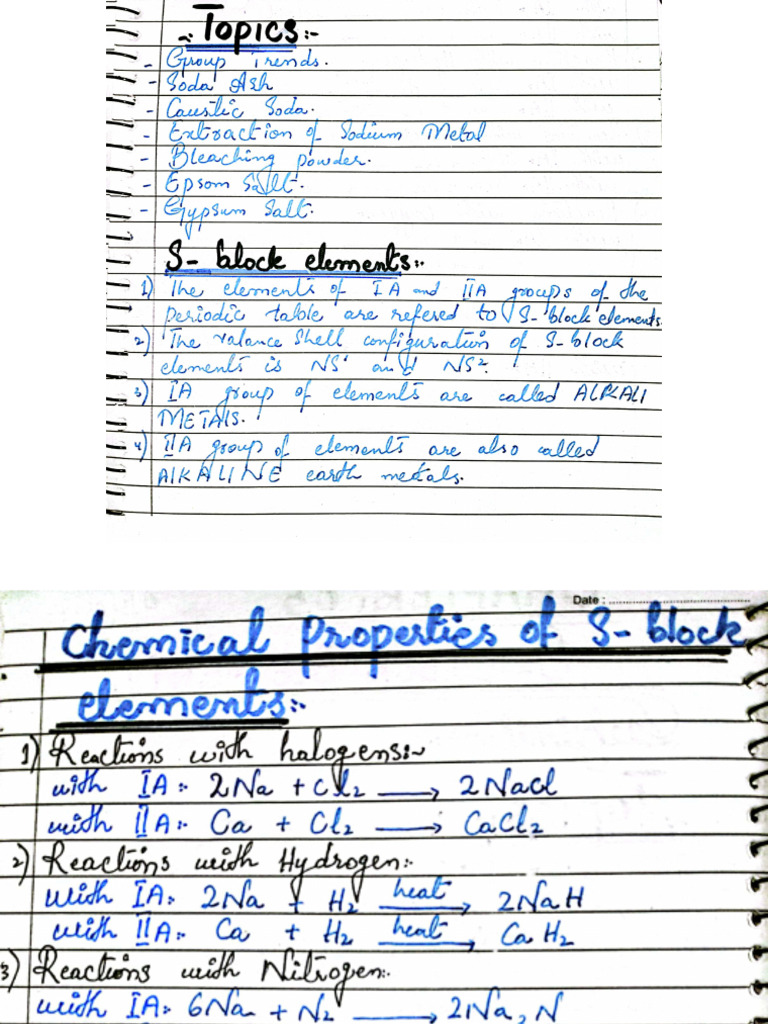 Topics:-
- Group Trends.
- Soda Ash
- Caustic Soda.
- Extraction of Sodium Metal
- Bleaching powder.
- Epsom Salt.
- Gypsum Salt.
S- block elements:-
1) The elements of IA and IIA groups of the
periodic table are refered to S- block elements.
2) The valance shell configuration of S-block
elements is NS¹ and NS².
3) IA group of elements are called ALKALI
METALS.
4) IIA group of elements are also called
AlKALINE earth metals.
Date :
Chemical Properties of S- block
elements:-
1) Reactions with halogens:~
with IA:- 2Na + Cl₂ ⟶ 2NaCl
with IIA:- Ca + Cl₂ ⟶ CaCl₂
2) Reactions with Hydrogen:-
with IA:- 2Na + H₂ heat⟶ 2NaH
with IIA:- Ca + H₂ heat⟶ CaH₂
3) Reactions with Nitrogen:-
with IA:- 6Na + N₂ ⟶ 2Na₃N